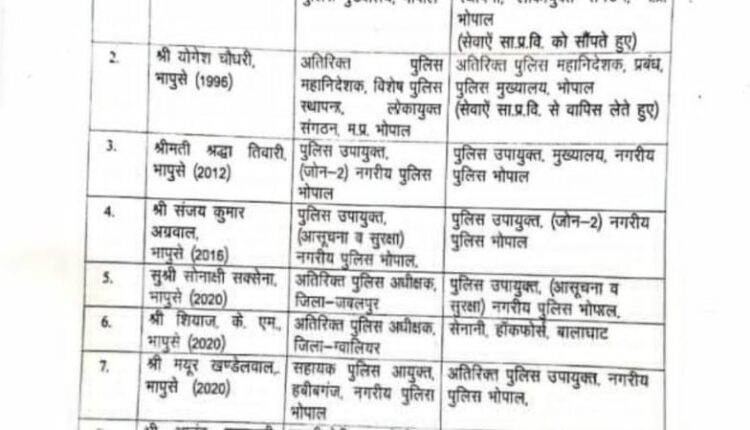 भोपाल
(सेवाऐं सा.प्र.वि. को सौंपते हुए)
2.
श्री योगेश चौधरी,
भापुसे (1996)
अतिरिक्त पुलिस
महानिदेशक, विशेष पुलिस
स्थापना, लोकायुक्त
संगठन, म.प्र. भोपाल
अतिरिक्त पुलिस महानिदेशक, प्रबंध,
पुलिस मुख्यालय, भोपाल
(सेवाऐं सा.प्र.वि. से वापिस लेते हुए)
3.
श्रीमती श्रद्धा तिवारी,
भापुसे (2012)
पुलिस उपायुक्त,
(जोन-2) नगरीय पुलिस
भोपाल
पुलिस उपायुक्त, मुख्यालय, नगरीय
पुलिस भोपाल
4.
श्री संजय कुमार
अग्रवाल,
भापुसे (2016)
पुलिस उपायुक्त,
(आसूचना व सुरक्षा)
नगरीय पुलिस भोपाल,
पुलिस उपायुक्त, (जोन-2) नगरीय
पुलिस भोपाल
5.
सुश्री सोनाक्षी सक्सेना,
भापुसे (2020)
अतिरिक्त पुलिस अधीक्षक,
जिला-जबलपुर
पुलिस उपायुक्त, (आसूचना व
सुरक्षा) नगरीय पुलिस भोपाल,
6.
श्री शियाज, के. एम.,
भापुसे (2020)
अतिरिक्त पुलिस अधीक्षक,
जिला-ग्वालियर
सेनानी, हॉकफोर्स, बालाघाट
7.
श्री मयूर खण्डेलवाल,
भापुसे (2020)
सहायक पुलिस आयुक्त,
हबीबगंज, नगरीय पुलिस
भोपाल
अतिरिक्त पुलिस उपायुक्त, नगरीय
पुलिस भोपाल,